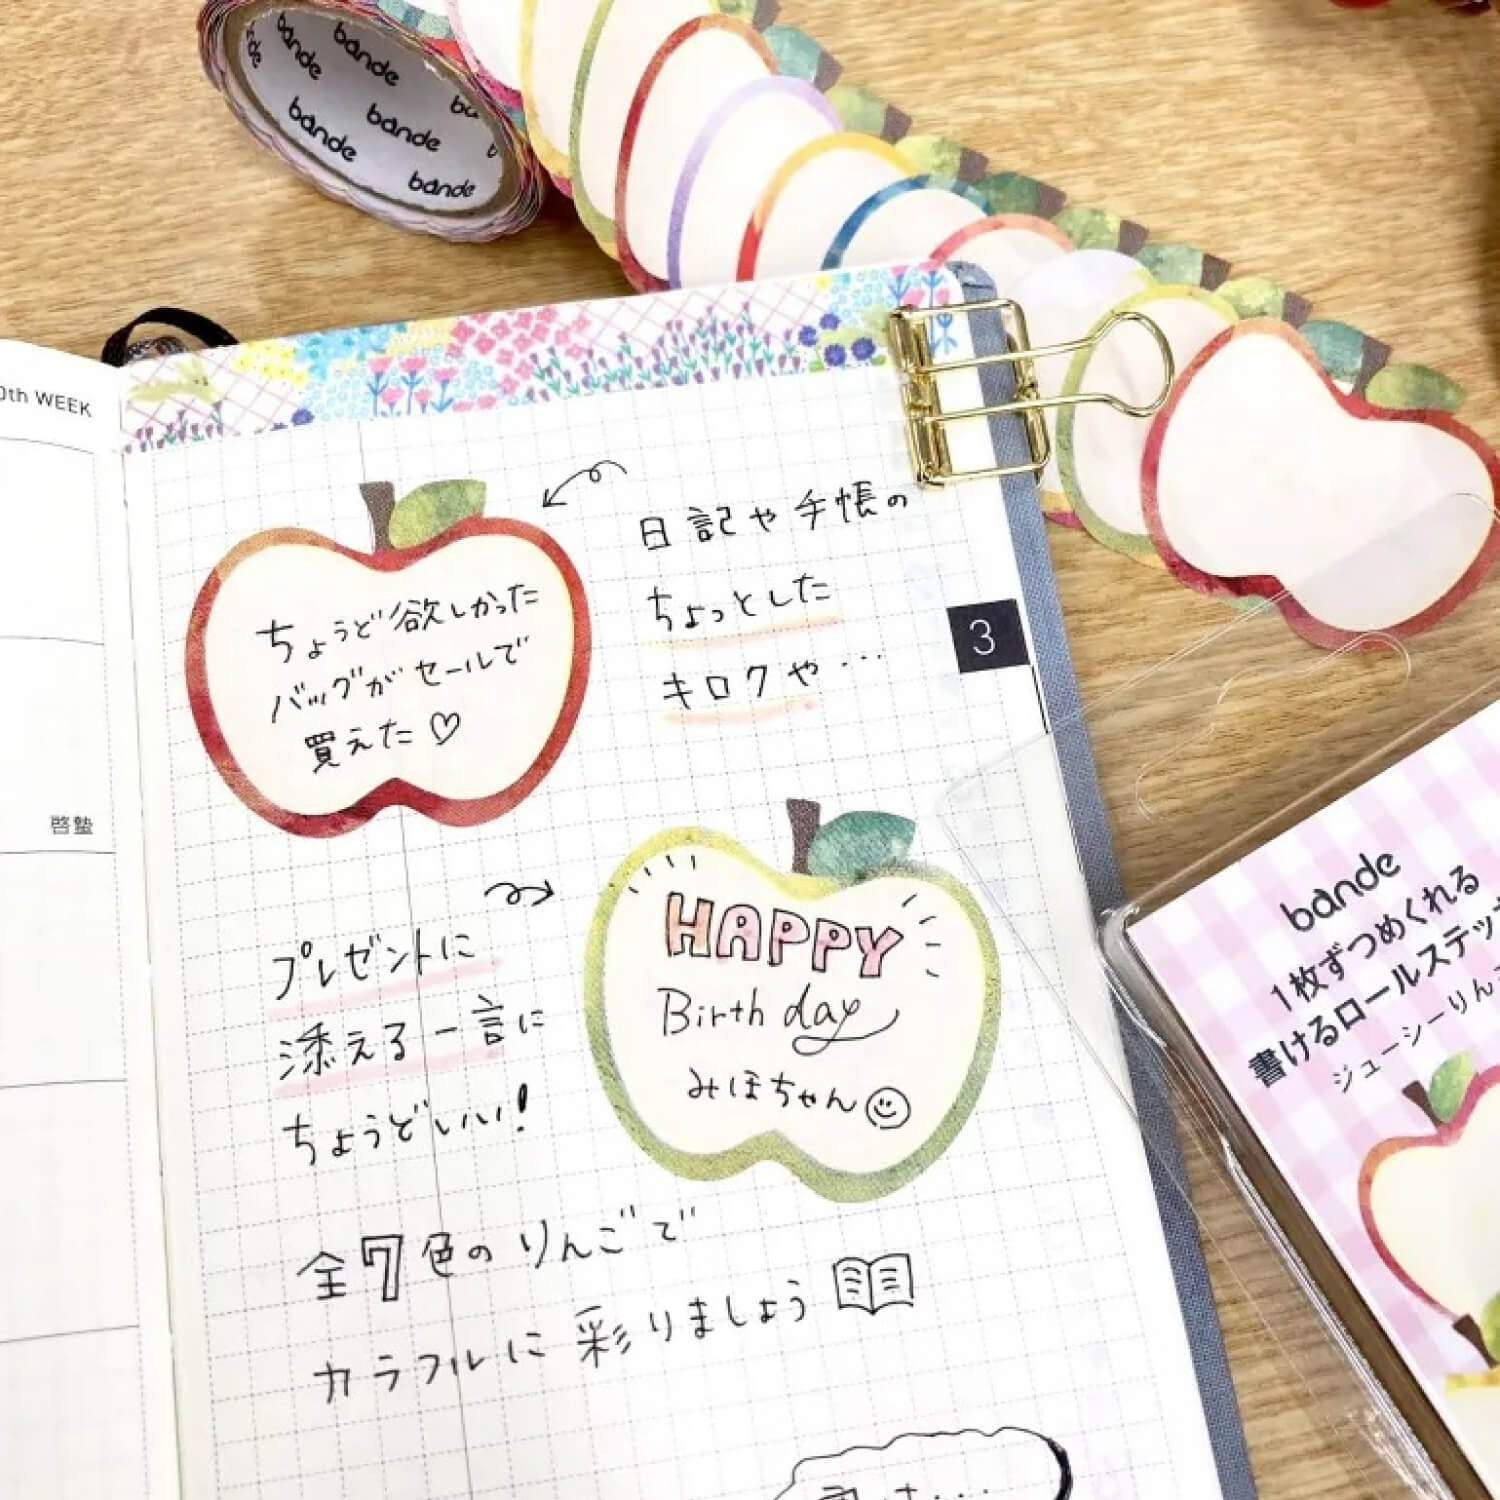 bande
bande
bande
bande
bande
bande
0th WEEK
啓蟄
3
ちょうど欲しかった
バッグがセールで
買えた♡
日記や手帳の
ちょっとした
キロクや…
プレゼントに
添える一言に
ちょうどいい!
HAPPY
Birthday
みほちゃん
全7色のりんごで
カラフルに彩りましょう
bande
1枚ずつめくれる
書けるロールステッ
ジューシーりん